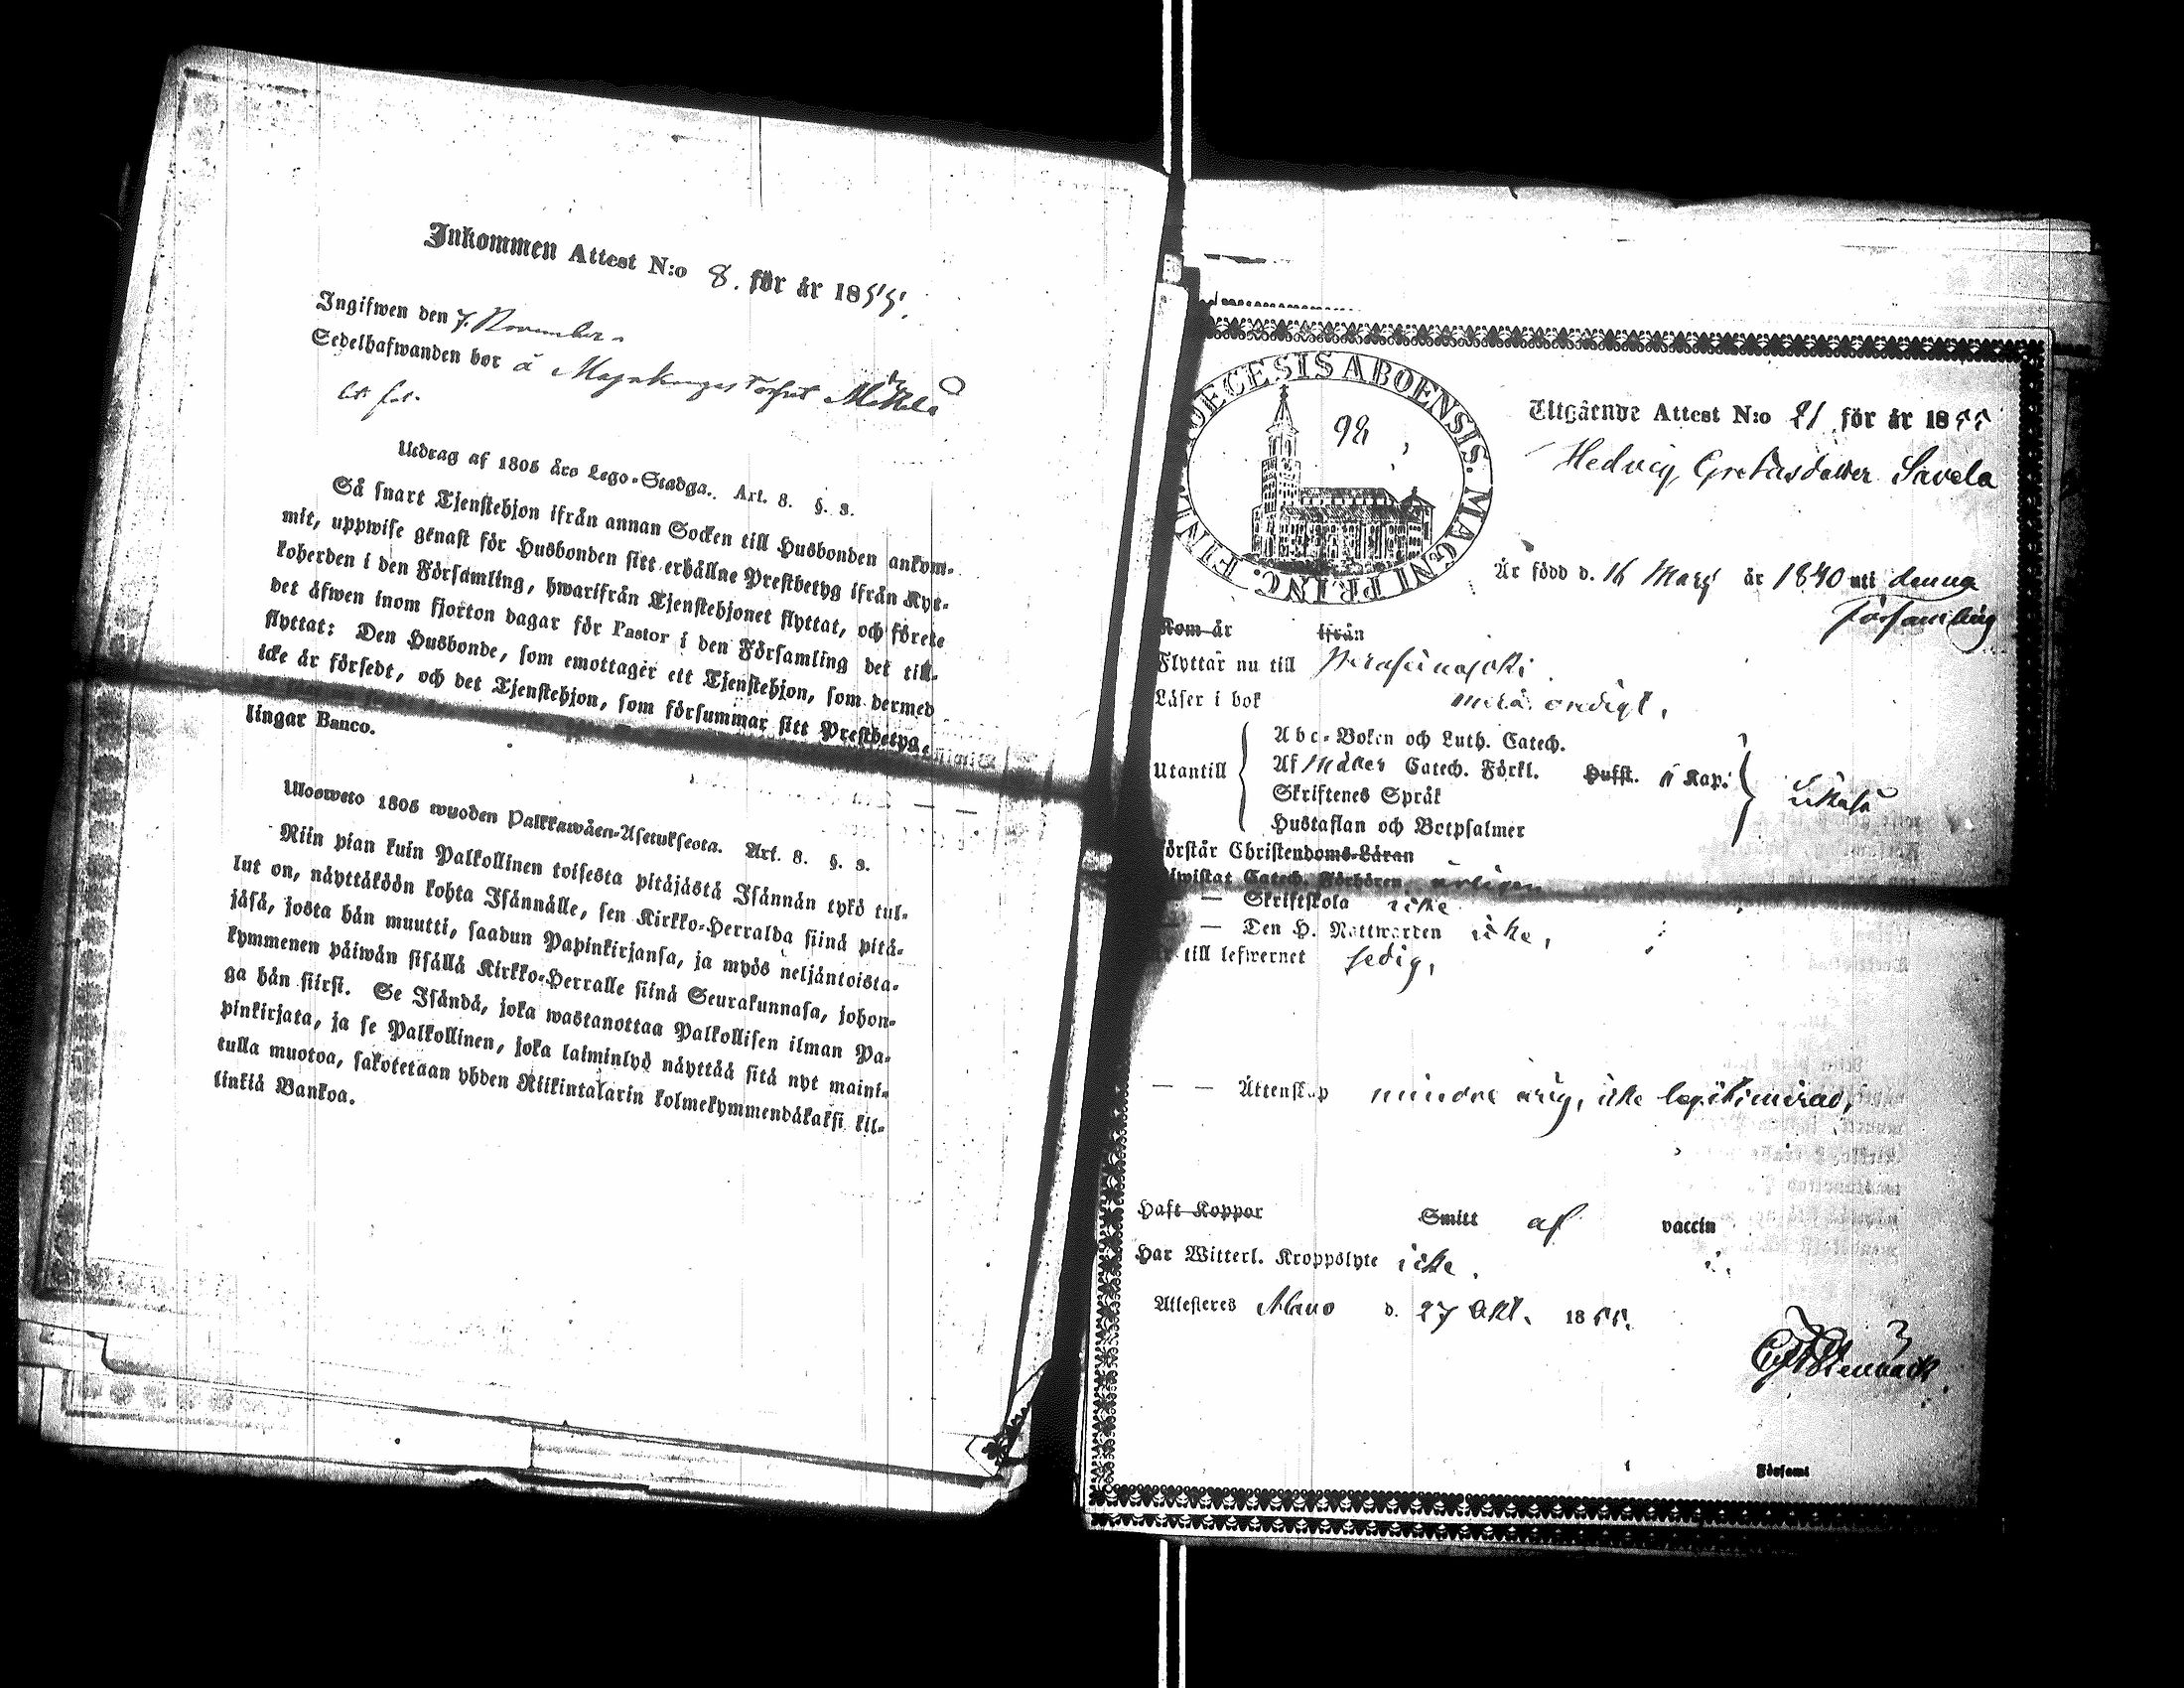 Inkommen Attest N:o 8. för år 1855.
Ingifwen den 7. November
Sedelhafwanden bor å
Utdrag af 1805 års Lego-Stadga. Art. 8. §. 3.
Så snart Tjenstehjon ifrån annan Socken till Husbonden ankom-
mit, uppwise genast för Husbonden sitt erhållne Prestbetyg ifrån Kyr-
koherden i den Församling, hwarifrån Tjenstehjonet flyttat, och förete
det äfwen inom fjorton dagar för Pastor i den Församling det till-
flyttat: Den Husbonde, som emottager ett Tjenstehjon, som dermed
icke är försedt, och det Tjenstehjon, som försummar sitt Prestbetyg
lingar Banco.
Ulosweto 1805 wuoden Palkkawäen-Asetuksesta. Art. 8. §. 3.
Niin pian kuin Palkollinen toisesta pitäjästä Isännän tykö tul-
lut on, näyttäköön kohta Isännälle, sen Kirkko-Herralda siinä pitä-
jäsä, josta hän muutti, saadun Papinkirjansa, ja myös neljäntoista-
kymmenen päiwän sisällä Kirkko-Herralle siinä Seurakunnasa, johon-
ga hän siirsi. Se Isändä, joka wastanottaa Palkollisen ilman Pa-
pinkirjata, ja se Palkollinen, joka laiminlyö näyttää sitä nyt maini-
tulla muotoa, sakotetaan yhden Riikintalarin kolmekymmendäkaksi kil-
linkiä Bankoa.
DIOECESIS ABOENSIS. MAGNI PRINC. FINL.
98
Utgående Attest N:o 21 för år 1855
Hedvig Gretasdotter Savela
Är född d. 16 Mars år 1840 uti denna
Församling
Kom år ifrån
Flyttar nu till Peraseinäjoki
Läser i bok
Utantill
Abc-Boken och Luth. Catech.
Af Catech. Förkl. Hufst. Kap.
Skriftenes Språk
Hustaflan och Botpsalmer
Förstår Christendoms-Läran
Bewistat Catech. Förhören årligen
— Skriftskola icke
— — Den H. Nattwarden icke,
Är till lefwernet sedig,
— — Ägtenskap minderårig, icke legitimerad,
Haft Koppor Smitt af vaccin
Har Witterl. Kroppslyte icke.
Attesteres Alavo d. 27 Okt. 1855.
Församl